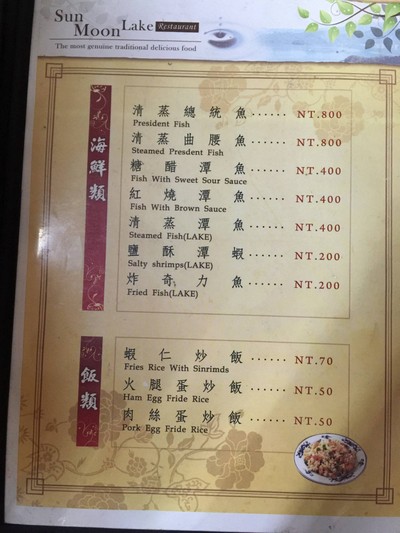 Sun Moon Lake Restaurant
The most genuine traditional delicious food
海鮮類
清蒸總統魚······ NT.800
President Fish
清蒸曲腰魚······ NT.800
Steamed Presdent Fish
糖醋潭魚······ NT.400
Fish With Sweet Sour Sauce
紅燒潭魚······ NT.400
Fish With Brown Sauce
清蒸潭魚······ NT.400
Steamed Fish(LAKE)
鹽酥潭蝦······ NT.200
Salty shrimps(LAKE)
炸奇力魚······ NT.200
Fried Fish(LAKE)
飯類
蝦仁炒飯······ NT.70
Fries Rice With Sinrimds
火腿蛋炒飯······ NT.50
Ham Egg Fride Rice
肉絲蛋炒飯······ NT.50
Pork Egg Fride Rice